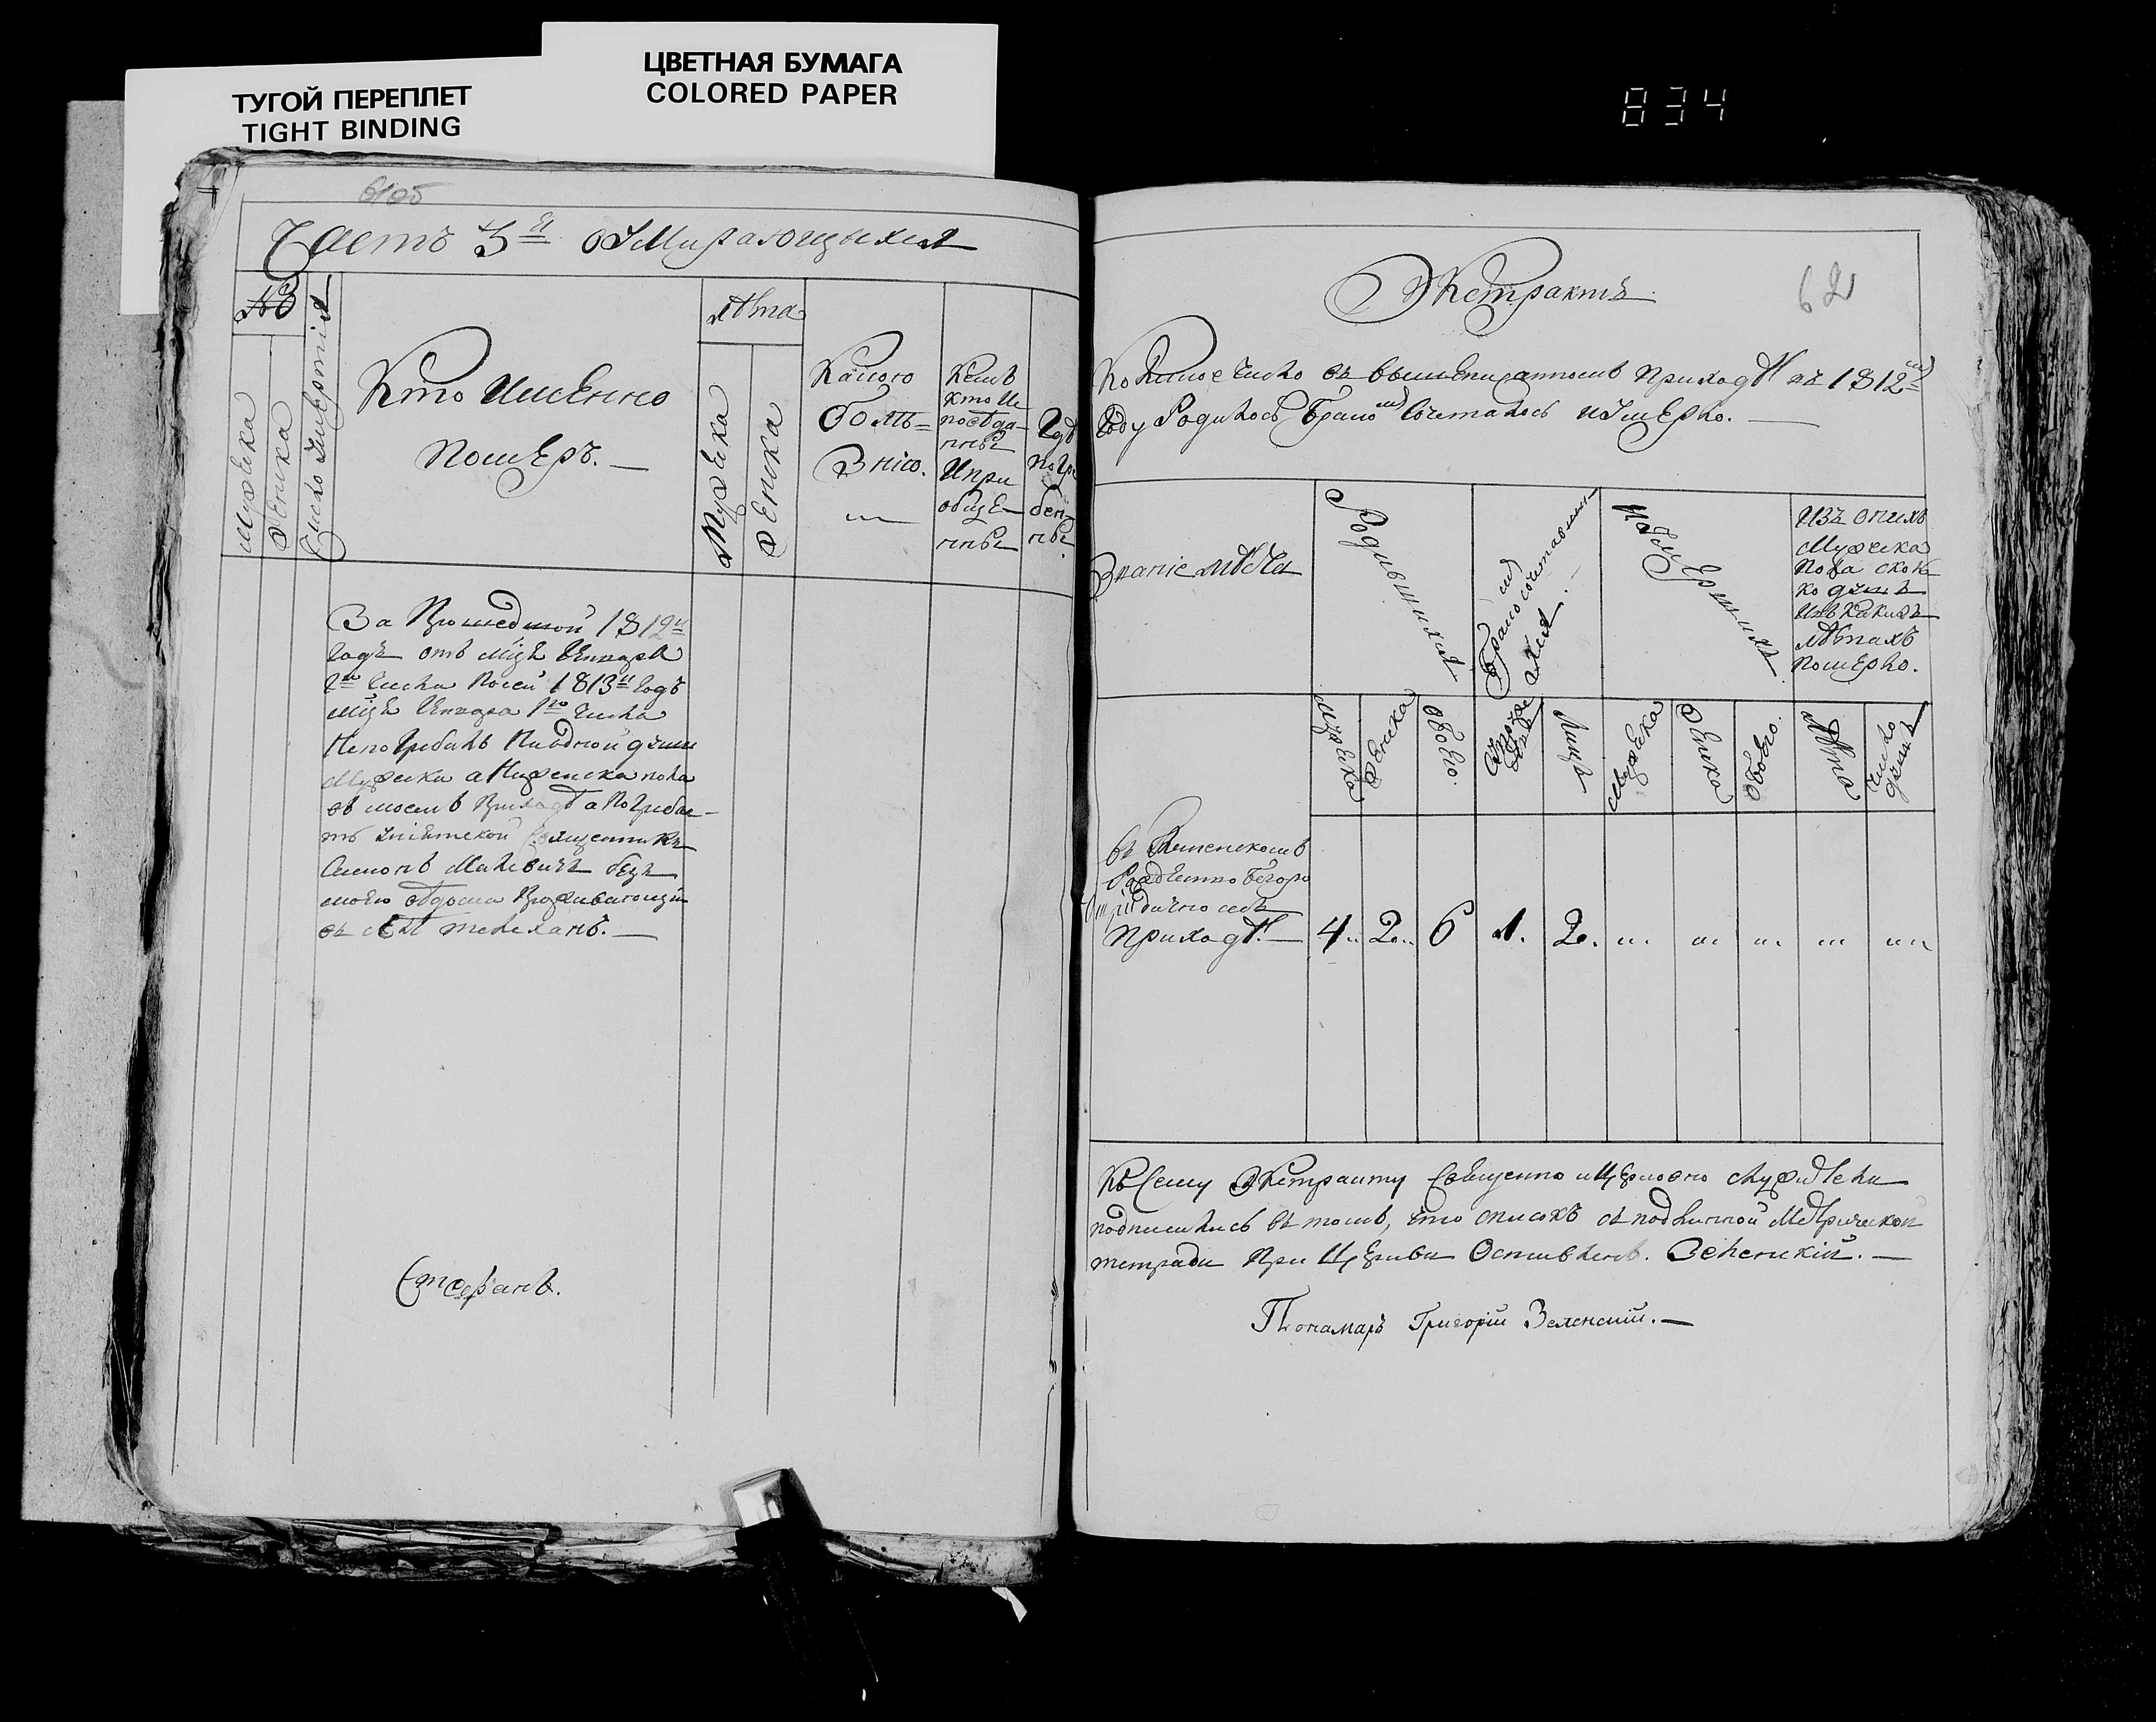 ТУГОЙ ПЕРЕПЛЕТ
TIGHT BINDING
ЦВЕТНАЯ БУМАГА
COLORED PAPER
834
6105
Часть 3я о Умирающыхся
№
Мужеска
женска
Число Умертвія
Кто именно
померъ.
лѣта
Мужека
женска
Какого
болѣ=
знію.
Кемъ
кто ис
повѣда
нны
И при
обще
нны
Гдѣ
погре
бен
ны
За Прошедшой 1812й
годъ отъ мцa Генваря
1го числа По сей 1813й годъ
мцa Генваря 1го числа
Не погребалъ Ни одной души
Мужска а Ни женска пола
въ моемъ Приходѣ а Погребае
тъ Уніятской Священникъ
Симонъ Малевичъ безъ
моего вѣдома Проживающій
въ селѣ
Стефанъ.
Экстрактъ
62
Коликое число въ вышеписанномъ приходѣ въ 1812м
Году Родилось, Бракомъ Сочеталось и Умерло.
Званіе мѣста
Родившихся
Бракомъ сочетавши
хся.
Умершихъ
Изъ онихъ
Мужеска
Пола сколь
ко душъ
и въ какихъ
лѣтахъ
Померло.
мужеска
женска
обоего.
Лицъ
мужеска
женска
обоего.
Лѣта
число
душъ
въ
приходѣ.
4 2 6 1. 2.
Къ Сему Экстракту Священно и Церковно служители
подписались въ томъ, что списокъ съ подлинной Метрической
тетради При Церкви Оставленъ. Зеленскій.
Понамаръ Григорій Зеленскій.